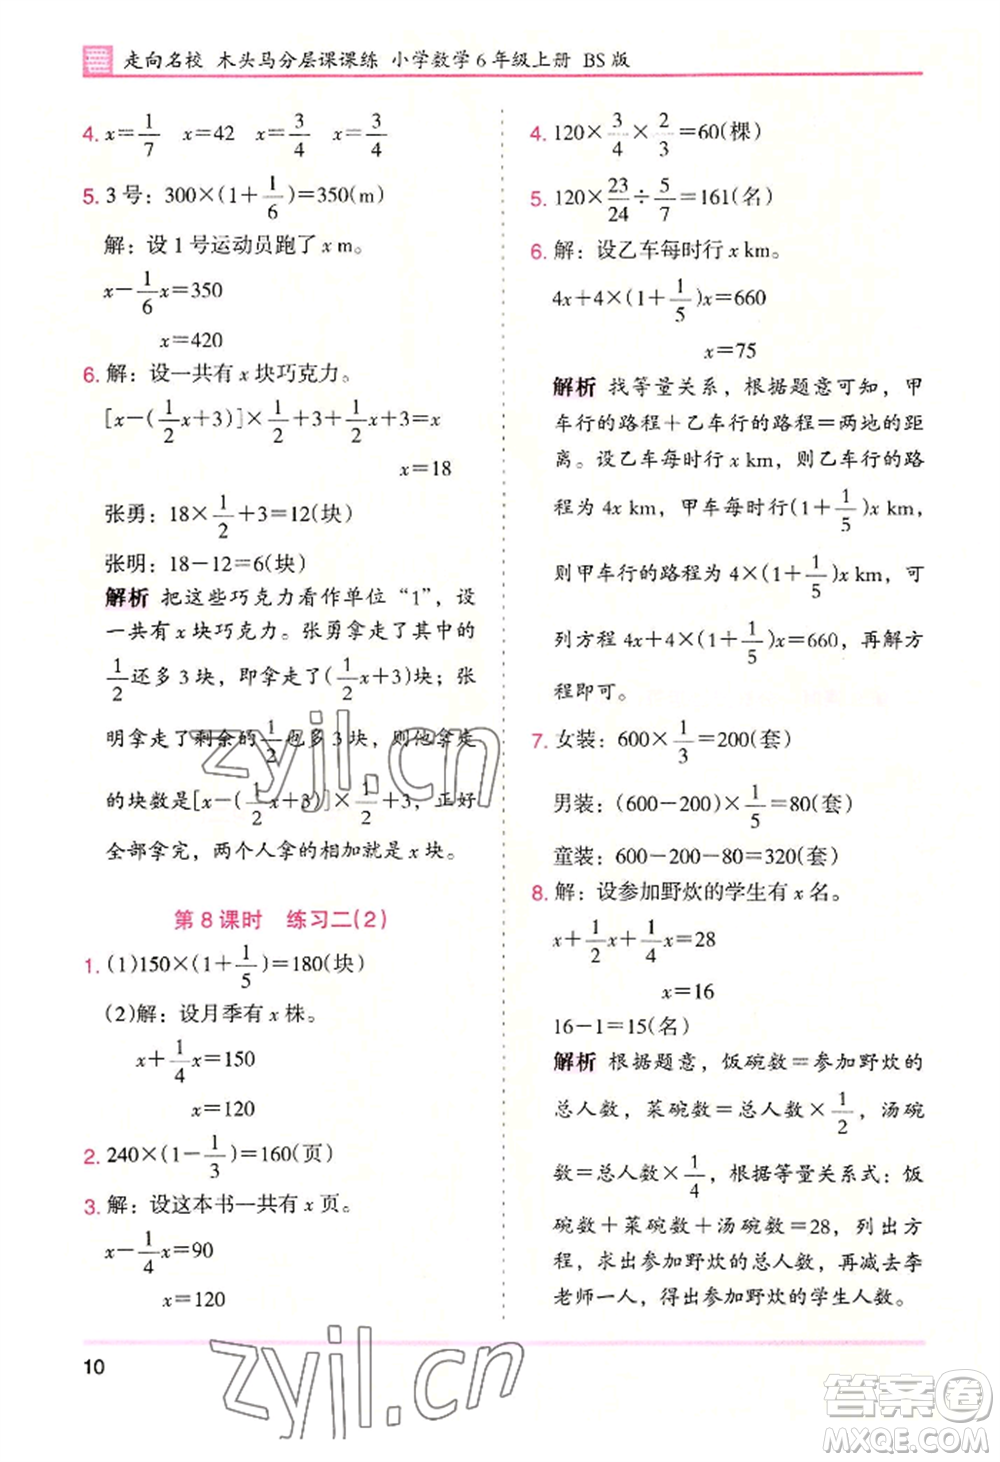 走向名校 木头马分层课课练 小学数学6年级上册 BS版
4. x=1/7 x=42 x=3/4 x=3/4
5. 3号：300×(1+1/6)=350(m)
解：设1号运动员跑了x m。
x-1/6x=350
x=420
6. 解：设一共有x块巧克力。
[x-(1/2x+3)]×1/2+3+1/2x+3=x
x=18
张勇：18×1/2+3=12(块)
张明：18-12=6(块)
解析 把这些巧克力看作单位“1”，设
一共有x块巧克力。张勇拿走了其中的
1/2还多3块，即拿走了(1/2x+3)块，张
明拿走了剩余的1/2也多3块，则他拿走
的块数是[x-(1/2x+3)]×1/2+3，正好
全部拿完，两个人拿的相加就是x块。
第8课时 练习二(2)
1. (1)150×(1+1/5)=180(块)
(2)解：设月季有x株。
x+1/4x=150
x=120
2. 240×(1-1/3)=160(页)
3. 解：设这本书一共有x页。
x-1/4x=90
x=120
4. 120×3/4×2/3=60(棵)
5. 120×23/24÷5/7=161(名)
6. 解：设乙车每时行x km。
4x+4×(1+1/5)x=660
x=75
解析 找等量关系，根据题意可知，甲
车行的路程+乙车行的路程=两地的距
离。设乙车每时行x km，则乙车行的路
程为4x km，甲车每时行(1+1/5)x km，
则甲车行的路程为4×(1+1/5)x km，可
列方程4x+4×(1+1/5)x=660，再解方
程即可。
7. 女装：600×1/3=200(套)
男装：(600-200)×1/5=80(套)
童装：600-200-80=320(套)
8. 解：设参加野炊的学生有x名。
x+1/2x+1/4x=28
x=16
16-1=15(名)
解析 根据题意，饭碗数=参加野炊的
总人数，菜碗数=总人数×1/2，汤碗
数=总人数×1/4，根据等量关系式：饭
碗数+菜碗数+汤碗数=28，列出方
程，求出参加野炊的总人数，再减去李
老师一人，得出参加野炊的学生人数。
10
zyjl.cn
zyjl.cn
答案卷
MXQE.COM